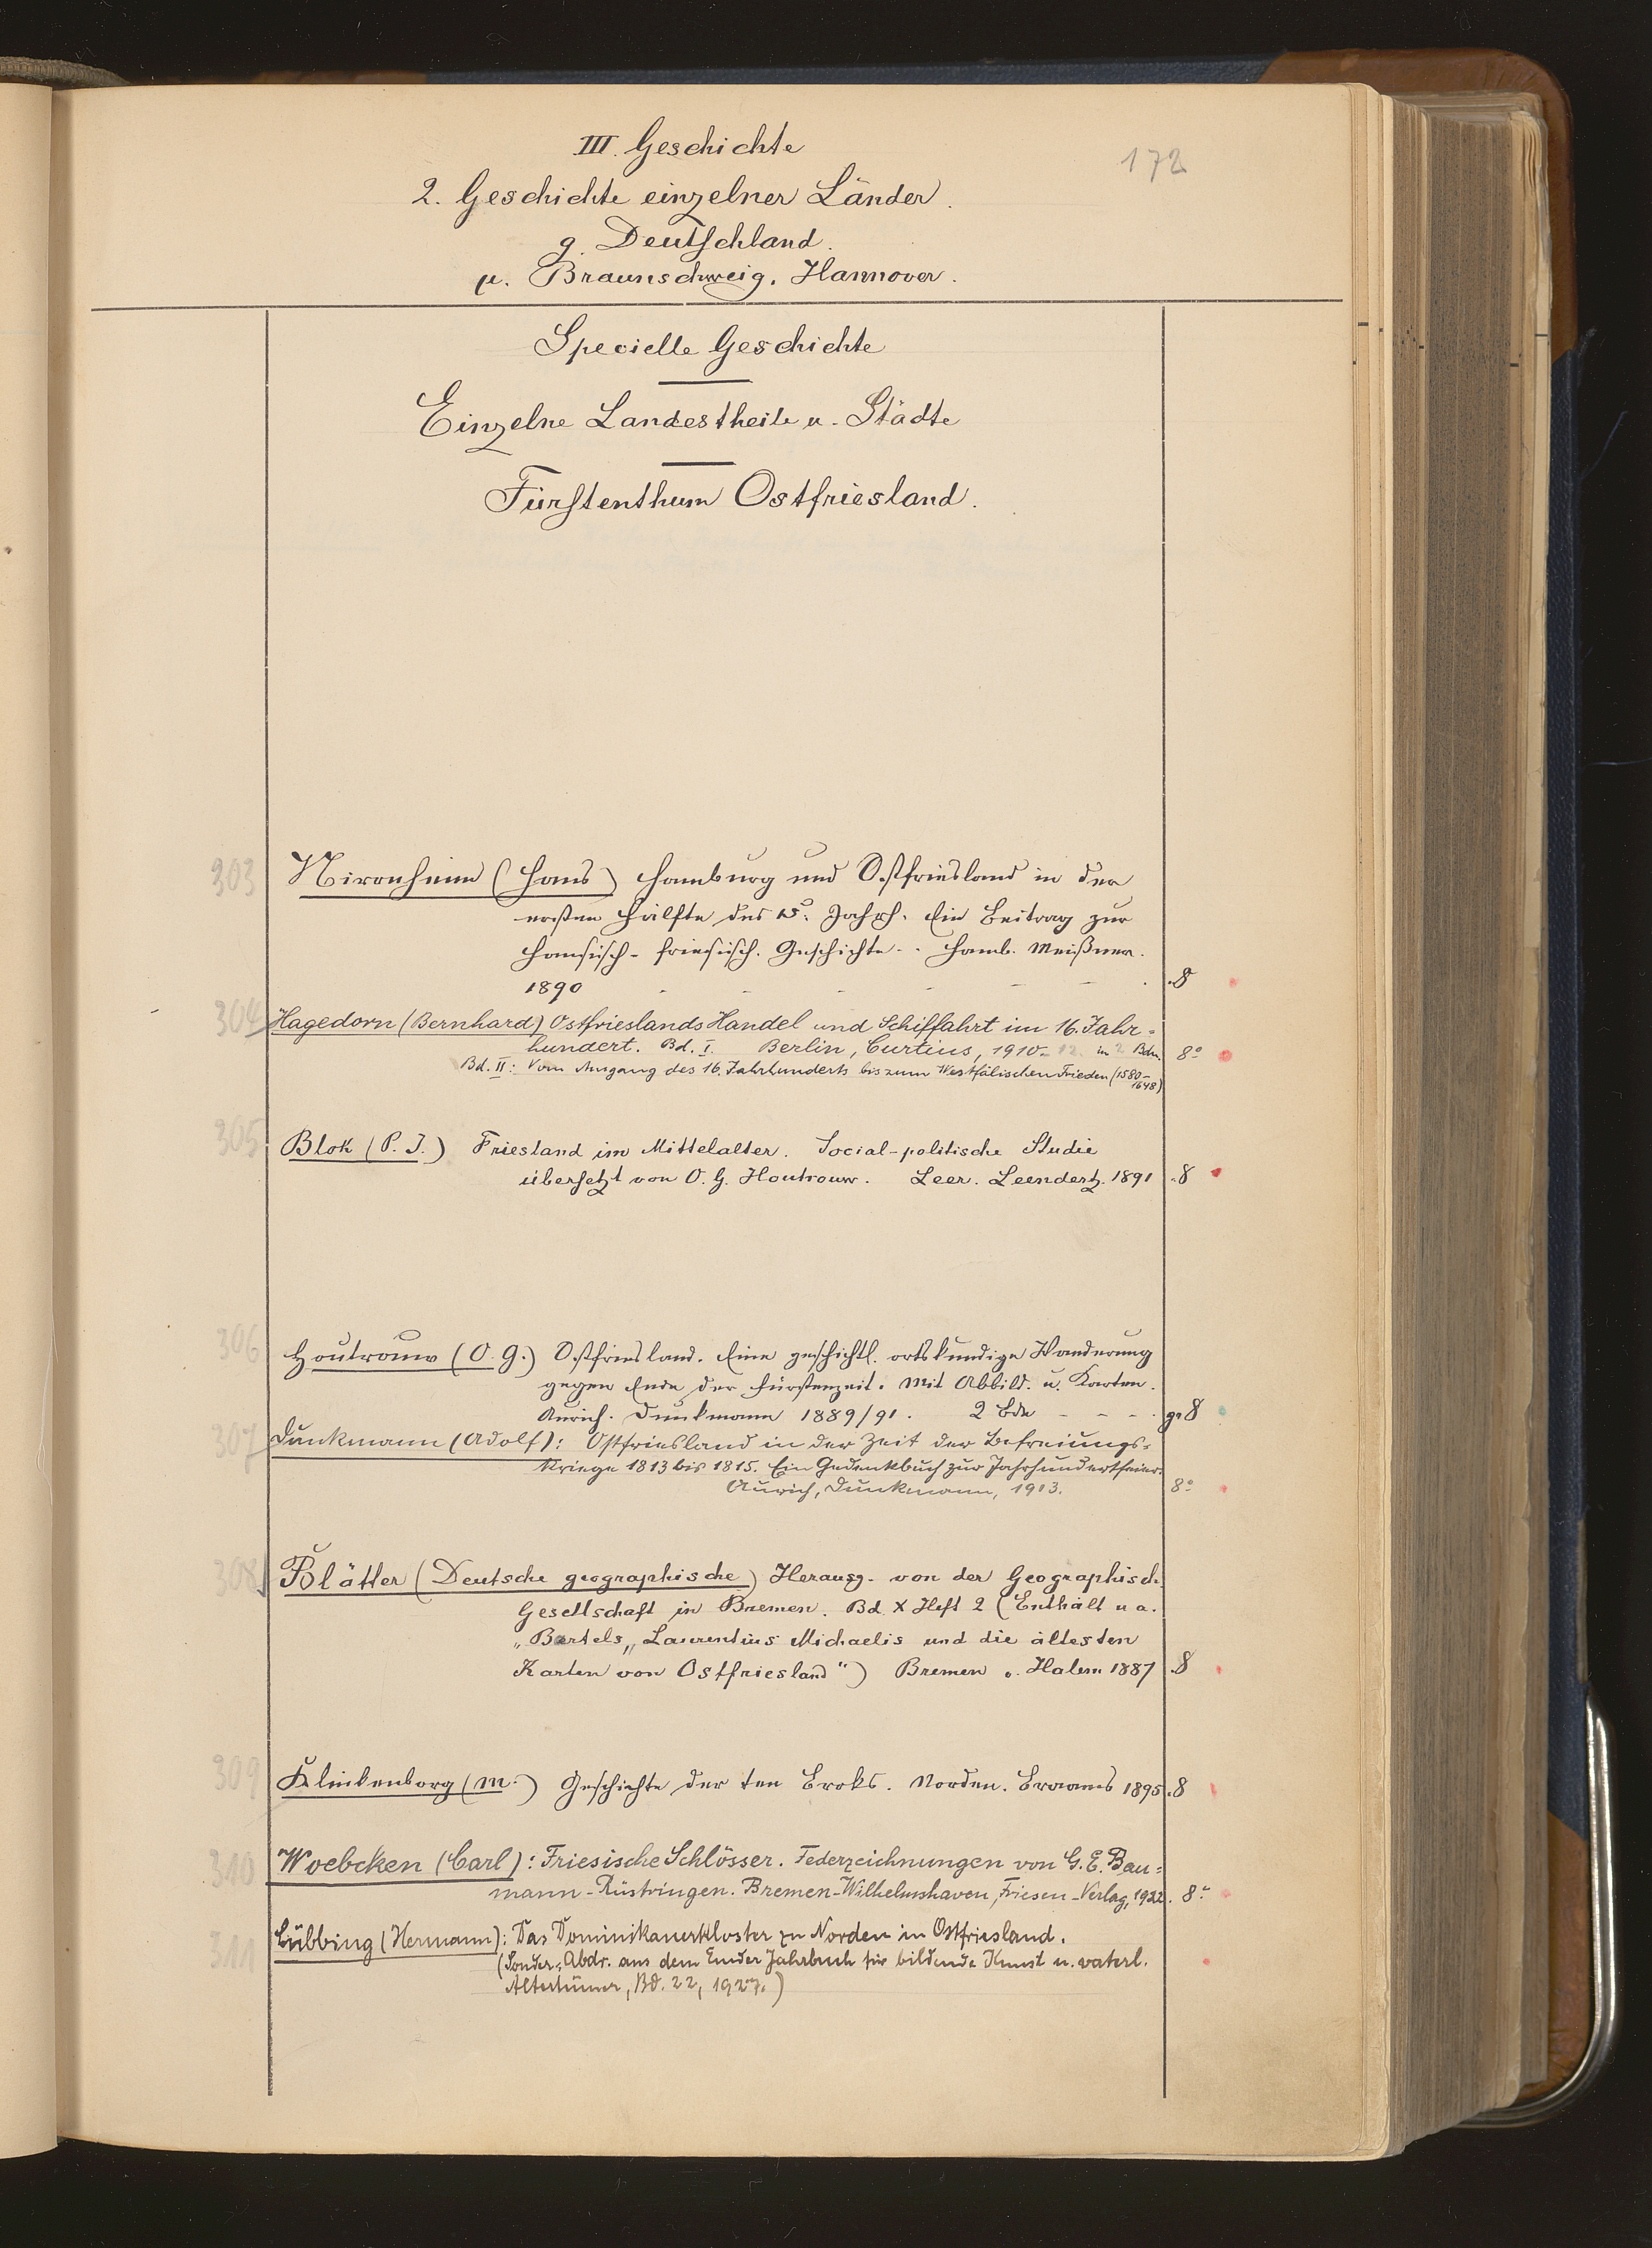 172
III. Geschichte
2. Geschichte einzelner Länder.
g. Deutschland.
μ. Braunschweig. Hannover.
Specielle Geschichte
Einzelne Landestheile u. Städte
Fürstenthum Ostfriesland.
303 Nirrnheim (Hans) Hamburg und Ostfriesland in der
ersten Hälfte des 15. Jahrh. Ein Beitrag zur
hansisch-friesisch. Geschichte - Hamb. Meißner.
1890 - - - - - - . 8
304 Hagedorn (Bernhard) Ostfrieslands Handel und Schiffahrt im 16. Jahr=
hundert. Bd. I. Berlin, Curtius, 1910-12. in 2 Bdn. 8°
Bd. II: Vom Ausgang des 16. Jahrhunderts bis zum Westfälischen Frieden (1580-
1648)
305 Blok (P. J.) Friesland im Mittelalter. Social-politische Studie
übersetzt von O. G. Houtrouw. Leer. Leendertz. 1891 . 8
306 Houtrouw (O. G.) Ostfriesland. Eine geschichtl. ortskundige Wanderung
gegen Ende der Fürstenzeit. Mit Abbild. u. Karten.
Aurich. Dunkmann 1889/91. 2 Bde - - - . gr 8
307 Dunkmann (Adolf): Ostfriesland in der Zeit der Befreiungs=
kriege 1813 bis 1815. Ein Gedenkbuch zur Jahrhundertfeier.
Aurich, Dunkmann, 1913. 8°
308 Blätter (Deutsche geographische) Herausg. von der Geographisch.
Gesellschaft in Bremen. Bd. X Heft 2 (Enthält u. a.
„Bartels„ Laurentius Michaelis und die ältesten
Karten von Ostfriesland") Bremen v. Halem 1887 . 8
309 Klinkenborg (M.) Geschichte der ten Broks. Norden. Braams 1895 . 8
310 Woebcken (Carl): Friesische Schlösser. Federzeichnungen von G. E. Bau=
mann-Rüstringen. Bremen-Wilhelmshaven, Friesen-Verlag, 1922. 8°
311 Lübbing (Hermann): Das Dominikanerkloster zu Norden in Ostfriesland.
(Sonder-Abdr. aus dem Emder Jahrbuch für bildende Kunst u. vaterl.
Altertümer, Bd. 22, 1927.)